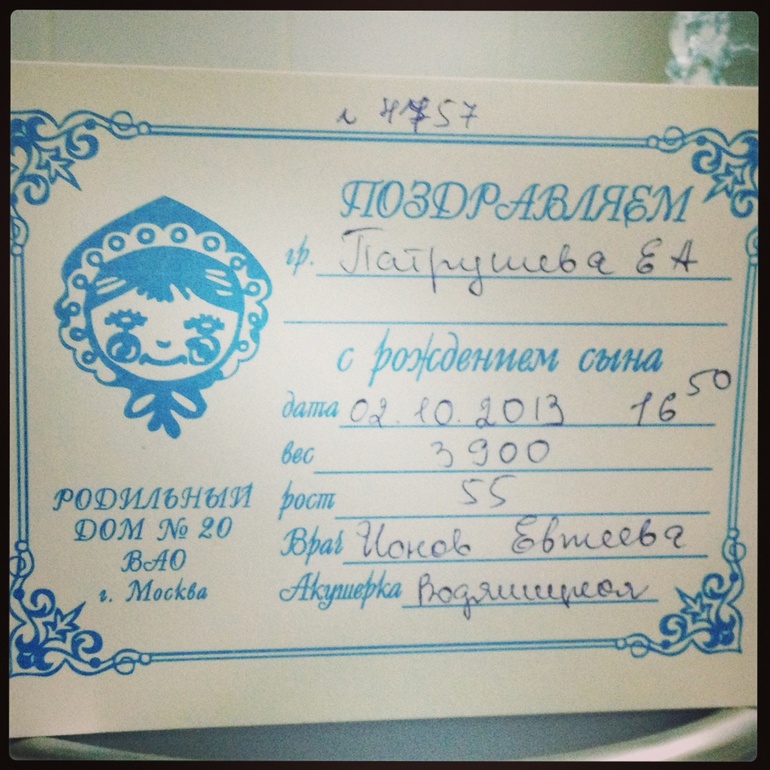 ПОЗДРАВЛЯЕМ
гр. Патрушева Е А
с рождением сына
дата 02.10.2013 16 50
вес 3900
рост 55
Врач Ионов Евтеева
Акушерка
РОДИЛЬНЫЙ
ДОМ № 20
ВАО
г. Москва